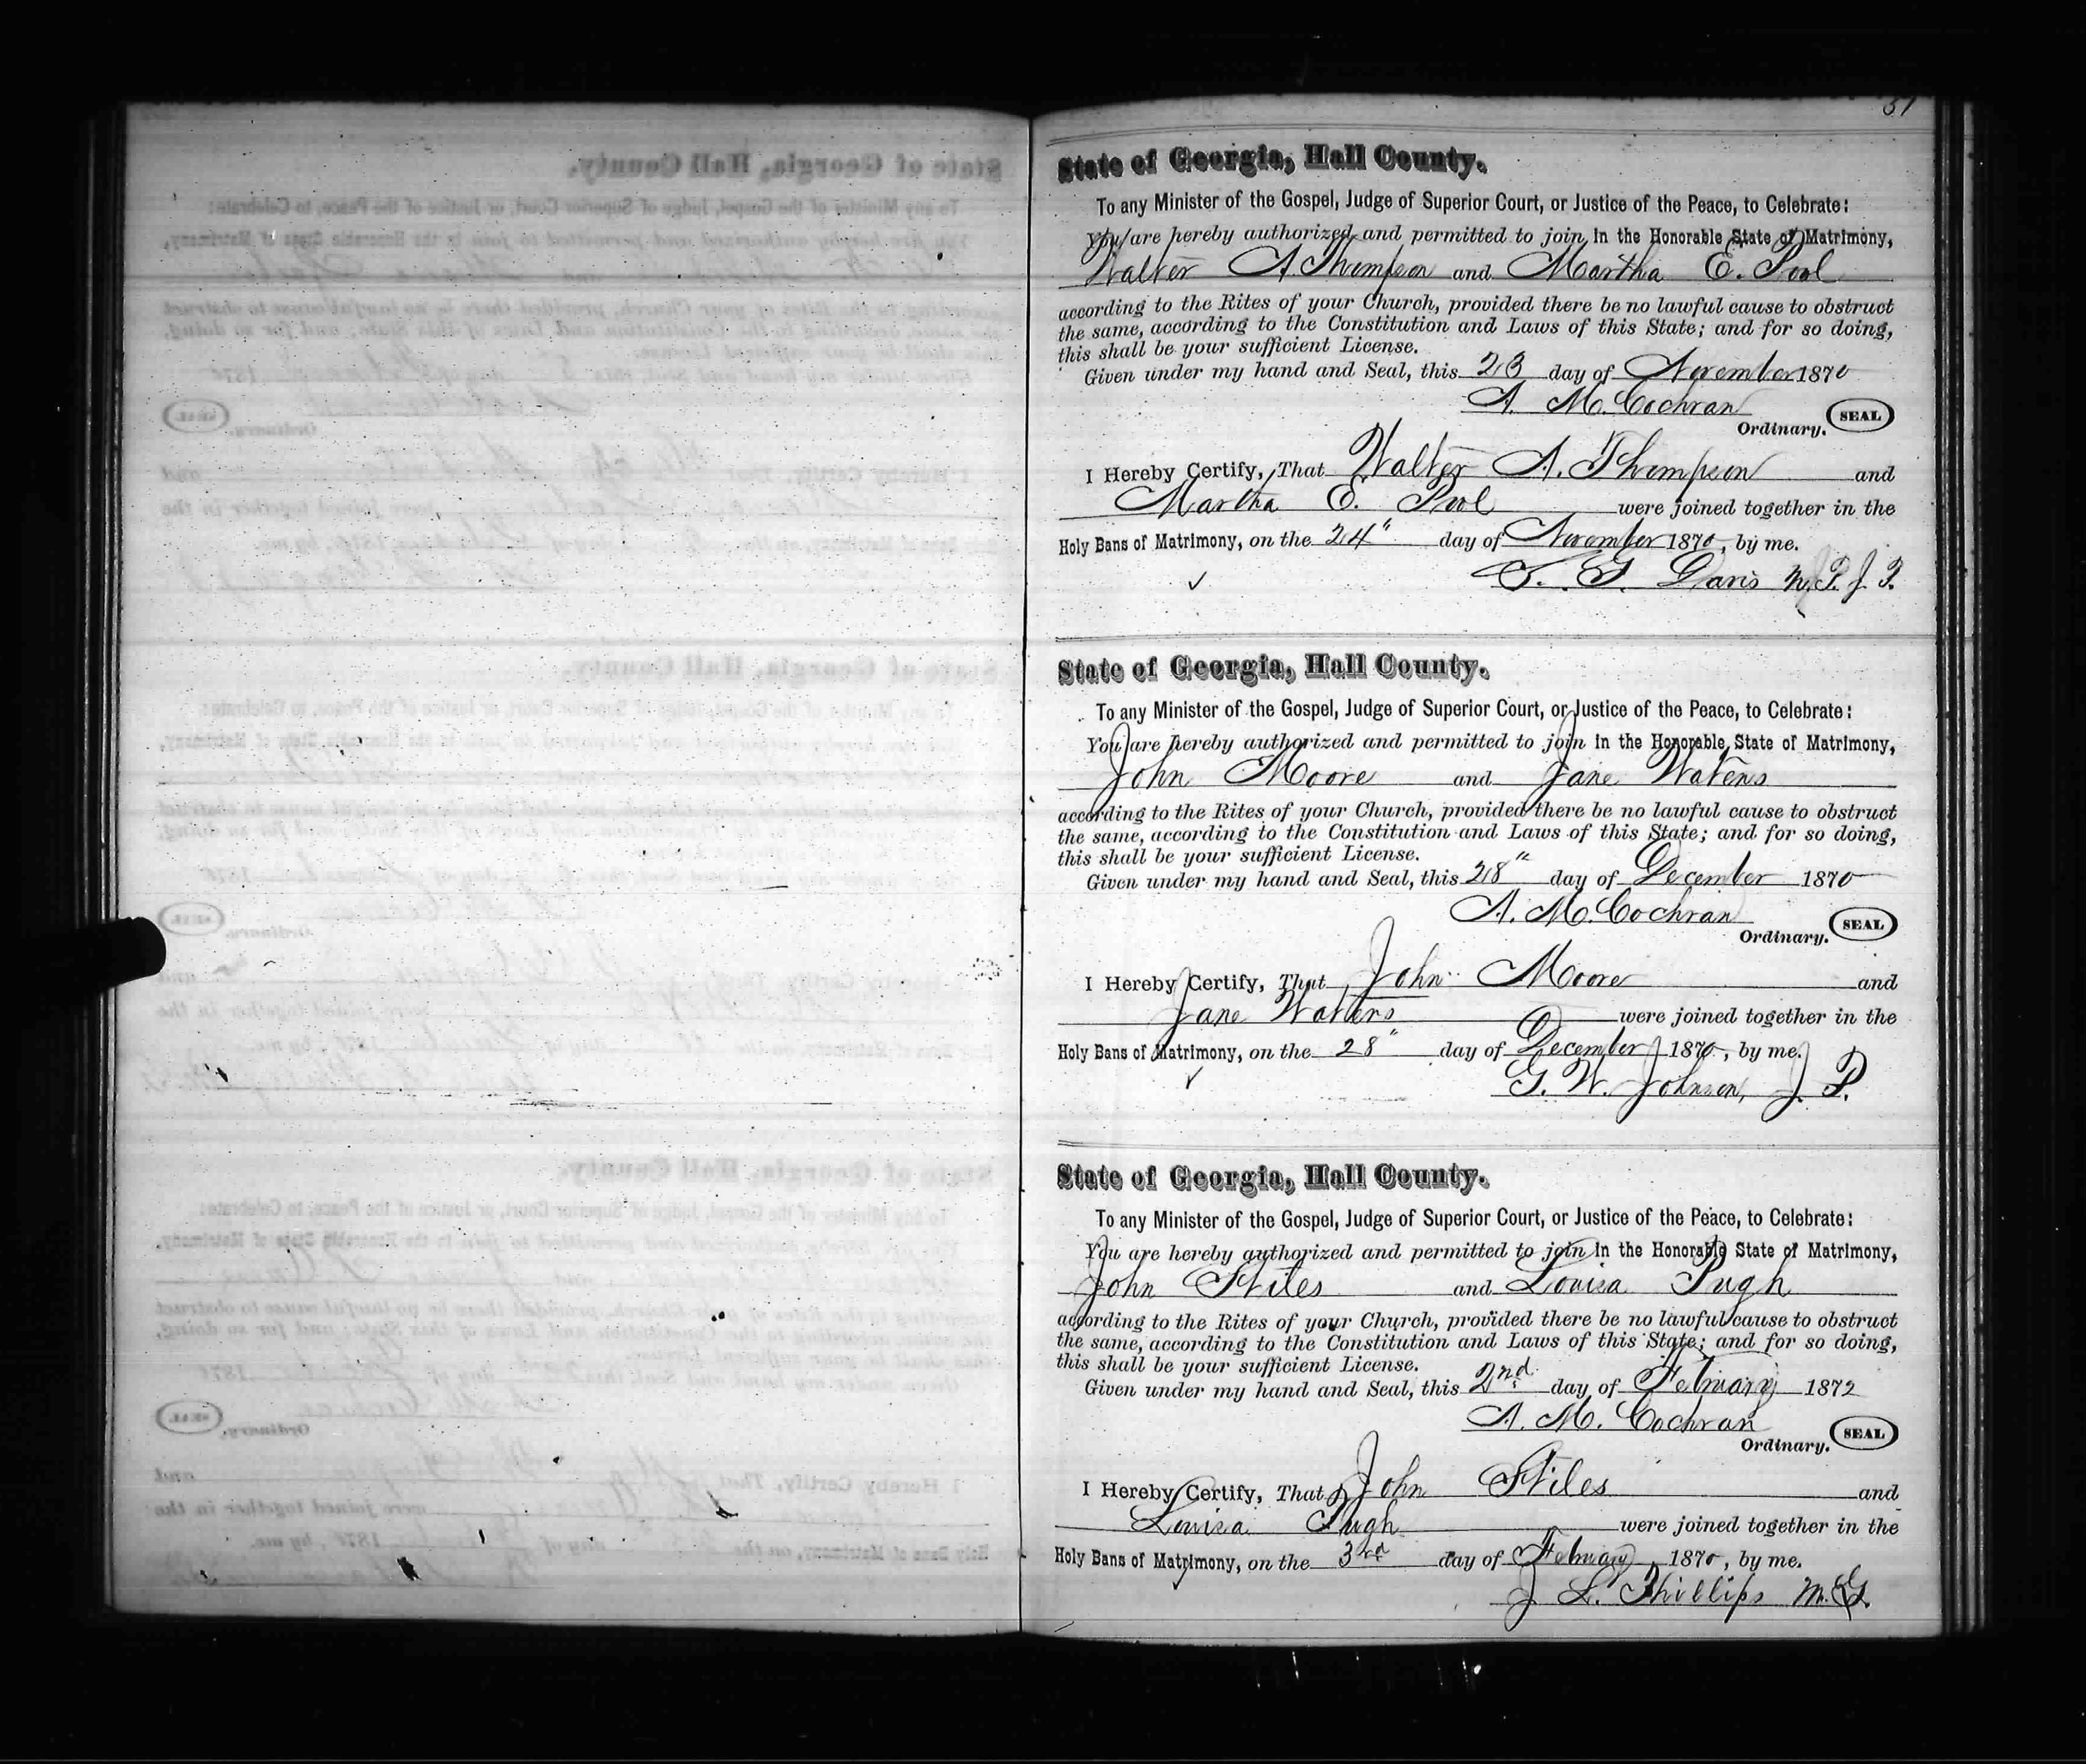 51
State of Georgia, Hall County.
To any Minister of the Gospel, Judge of Superior Court, or Justice of the Peace, to Celebrate:
You are hereby authorized and permitted to join in the Honorable State of Matrimony,
Walter A Thompson and Martha E. Pool
according to the Rites of your Church, provided there be no lawful cause to obstruct
the same, according to the Constitution and Laws of this State; and for so doing,
this shall be your sufficient License.
Given under my hand and Seal, this 23 day of November 1870
A. M. Cochran
Ordinary. SEAL
I Hereby Certify, That Walter A. Thompson and
Martha E. Pool were joined together in the
Holy Bans of Matrimony, on the 24" day of November 1870, by me.
Davis N. P. J. P.
State of Georgia, Hall County.
To any Minister of the Gospel, Judge of Superior Court, or Justice of the Peace, to Celebrate:
You are hereby authorized and permitted to join in the Honorable State of Matrimony,
John Moore and Jane Waters
according to the Rites of your Church, provided there be no lawful cause to obstruct
the same, according to the Constitution and Laws of this State; and for so doing,
this shall be your sufficient License.
Given under my hand and Seal, this 28" day of December 1870
A. M. Cochran
Ordinary. SEAL
I Hereby Certify, That John Moore and
Jane Waters were joined together in the
Holy Bans of Matrimony, on the 28" day of December 1870, by me.
G. W. Johnson, J. P.
State of Georgia, Hall County.
To any Minister of the Gospel, Judge of Superior Court, or Justice of the Peace, to Celebrate:
You are hereby authorized and permitted to join in the Honorable State of Matrimony,
John Stiles and Louisa Pugh
according to the Rites of your Church, provided there be no lawful cause to obstruct
the same, according to the Constitution and Laws of this State; and for so doing,
this shall be your sufficient License.
Given under my hand and Seal, this 2nd day of February 1872
A. M. Cochran
Ordinary. SEAL
I Hereby Certify, That John Stiles and
Louisa Pugh were joined together in the
Holy Bans of Matrimony, on the 3rd day of February, 1870, by me.
J. L. Phillips M.G.